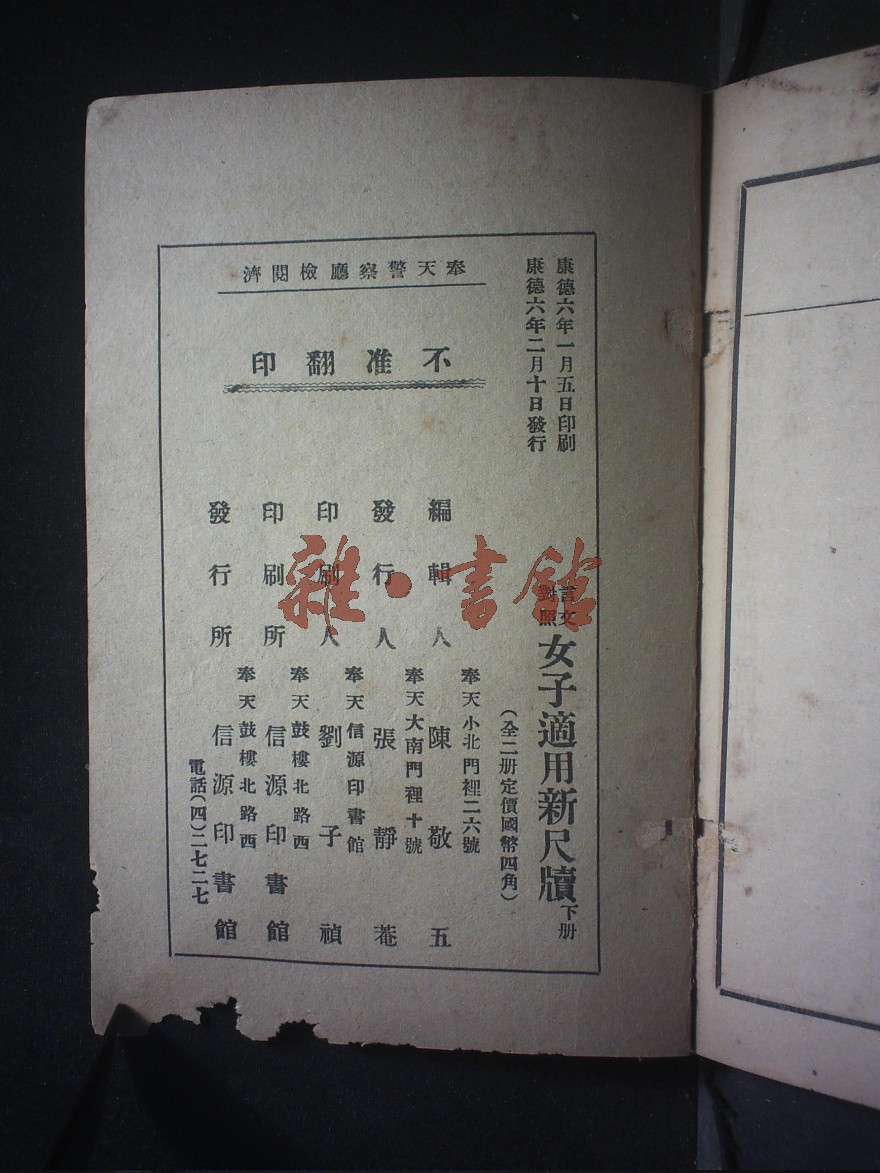 康德六年一月五日印刷
康德六年二月十日發行
奉天警察廳檢閱濟
不准翻印
言文對照
女子適用新尺牘下册
(全二册定價國幣四角)
奉天小北門裡二六號
編輯人 陳敬五
奉天大南門裡十號
發行人 張靜菴
奉天信源印書館
印刷人 劉子禎
奉天鼓樓北路西
印刷所 信源印書館
奉天鼓樓北路西
發行所 信源印書館
電話(四)二七二七
雜·書館